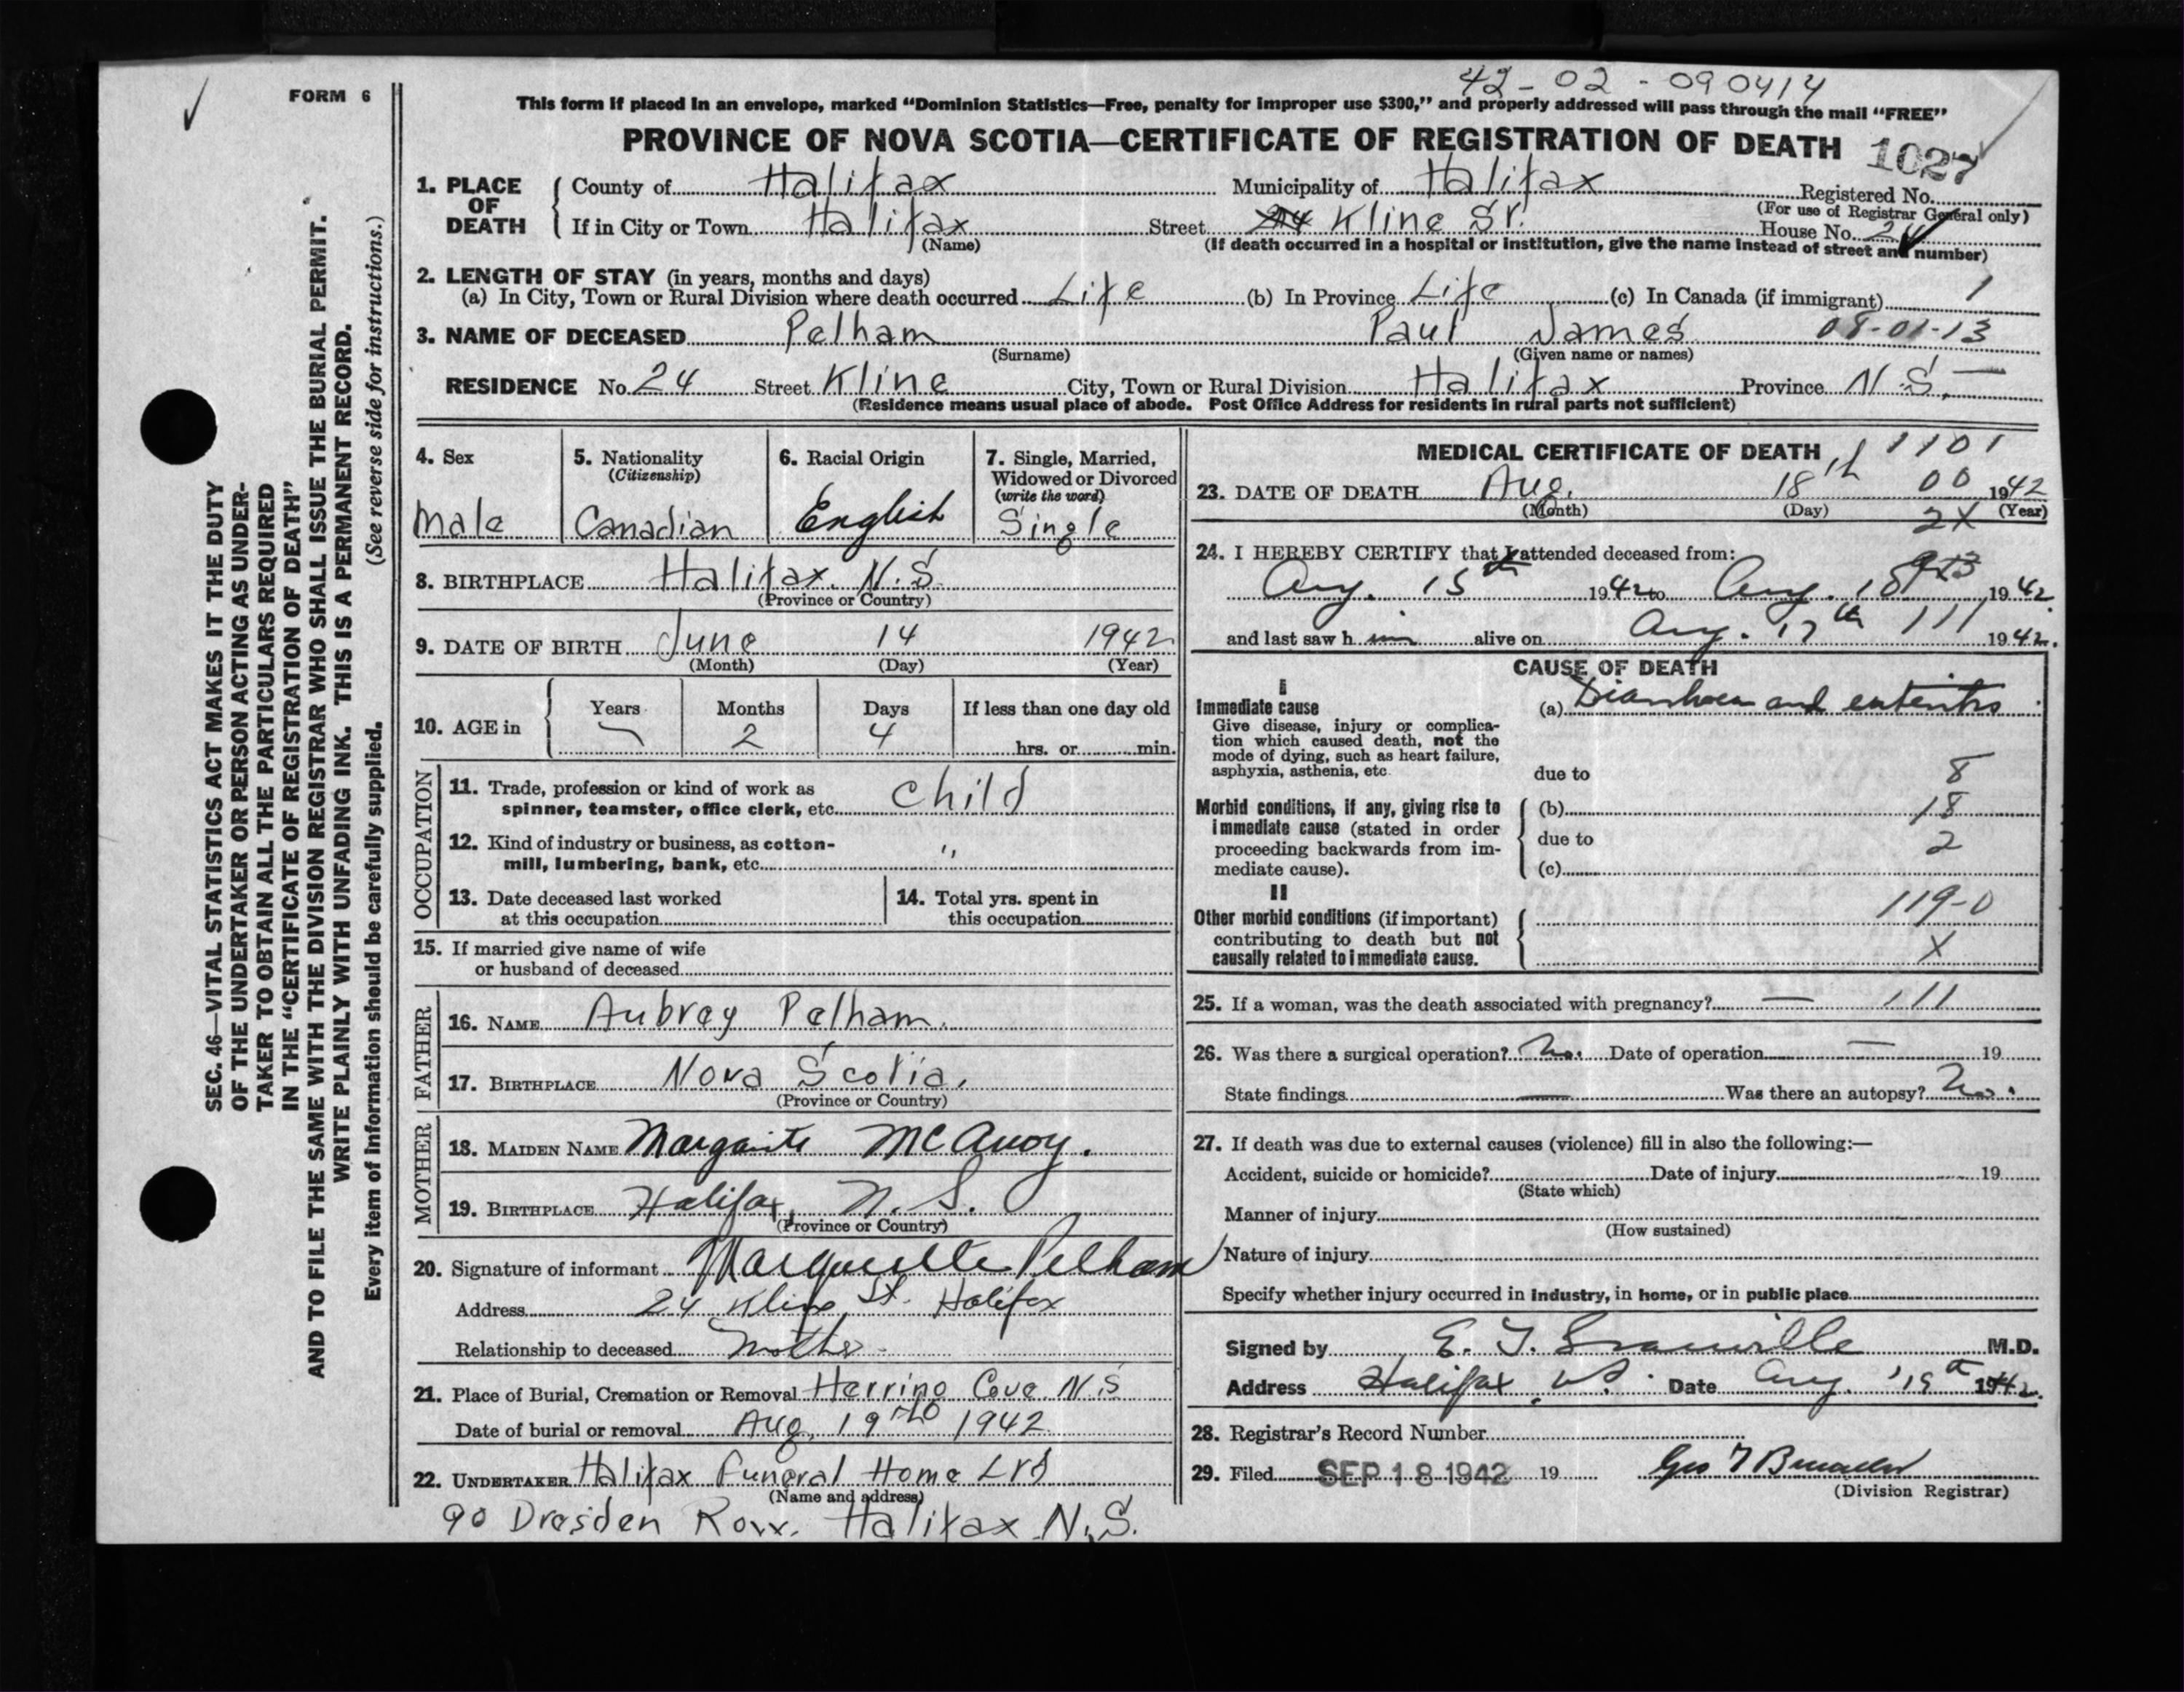 42-02-090414
FORM 6
This form if placed in an envelope, marked “Dominion Statistics—Free, penalty for improper use $300,” and properly addressed will pass through the mail “FREE”
PROVINCE OF NOVA SCOTIA—CERTIFICATE OF REGISTRATION OF DEATH 1027
1. PLACE OF DEATH County of Halifax Municipality of Halifax Registered No.
(For use of Registrar General only)
If in City or Town Halifax Street Kline St. House No. 24
(Name) (If death occurred in a hospital or institution, give the name instead of street and number)
2. LENGTH OF STAY (in years, months and days)
(a) In City, Town or Rural Division where death occurred Life (b) In Province Life (c) In Canada (if immigrant) 1
3. NAME OF DECEASED Pelham Paul James 08-01-13
(Surname) (Given name or names)
RESIDENCE No. 24 Street Kline City, Town or Rural Division Halifax Province N.S.
(Residence means usual place of abode. Post Office Address for residents in rural parts not sufficient)
4. Sex 5. Nationality 6. Racial Origin 7. Single, Married,
(Citizenship) Widowed or Divorced
(write the word)
Male Canadian English Single
8. BIRTHPLACE Halifax. N.S.
(Province or Country)
9. DATE OF BIRTH June 14 1942
(Month) (Day) (Year)
Years Months Days If less than one day old
10. AGE in 2 4 hrs. or min.
OCCUPATION
11. Trade, profession or kind of work as
spinner, teamster, office clerk, etc. child
12. Kind of industry or business, as cotton-
mill, lumbering, bank, etc. "
13. Date deceased last worked 14. Total yrs. spent in
at this occupation this occupation
15. If married give name of wife
or husband of deceased
FATHER
16. NAME Aubrey Pelham.
17. BIRTHPLACE Nova Scotia.
(Province or Country)
MOTHER
18. MAIDEN NAME Margarite McAvoy.
19. BIRTHPLACE Halifax, N.S.
(Province or Country)
20. Signature of informant Marguerite Pelham
Address 24 Kline St. Halifax
Relationship to deceased Mother
21. Place of Burial, Cremation or Removal Herring Cove N.S
Date of burial or removal Aug. 19 1942
22. UNDERTAKER Halifax Funeral Home Ltd
(Name and address)
90 Dresden Row. Halifax N.S.
MEDICAL CERTIFICATE OF DEATH 1101
23. DATE OF DEATH Aug. 18th 00 1942
(Month) (Day) (Year)
2X
24. I HEREBY CERTIFY that I attended deceased from:
Aug. 15th 1942 to Aug. 18 1942
and last saw him alive on Aug. 17th 111 1942.
CAUSE OF DEATH
I
Immediate cause (a) Diarrhoea and enteritis
Give disease, injury or complica-
tion which caused death, not the
mode of dying, such as heart failure,
asphyxia, asthenia, etc. due to 8
Morbid conditions, if any, giving rise to (b) 18
immediate cause (stated in order due to 2
proceeding backwards from im-
mediate cause). (c)
II
119-0
Other morbid conditions (if important)
contributing to death but not
causally related to immediate cause. X
25. If a woman, was the death associated with pregnancy? — 111
26. Was there a surgical operation? No. Date of operation — 19
State findings — Was there an autopsy? No.
27. If death was due to external causes (violence) fill in also the following:—
Accident, suicide or homicide? Date of injury 19
(State which)
Manner of injury
(How sustained)
Nature of injury
Specify whether injury occurred in industry, in home, or in public place
Signed by E. T. Granville M.D.
Address Halifax, N.S. Date Aug. 19th 1942.
28. Registrar's Record Number
29. Filed SEP 18 1942 19
(Division Registrar)
SEC. 46—VITAL STATISTICS ACT MAKES IT THE DUTY
OF THE UNDERTAKER OR PERSON ACTING AS UNDER-
TAKER TO OBTAIN ALL THE PARTICULARS REQUIRED
IN THE “CERTIFICATE OF REGISTRATION OF DEATH”
AND TO FILE THE SAME WITH THE DIVISION REGISTRAR WHO SHALL ISSUE THE BURIAL PERMIT.
WRITE PLAINLY WITH UNFADING INK. THIS IS A PERMANENT RECORD.
Every item of information should be carefully supplied. (See reverse side for instructions.)